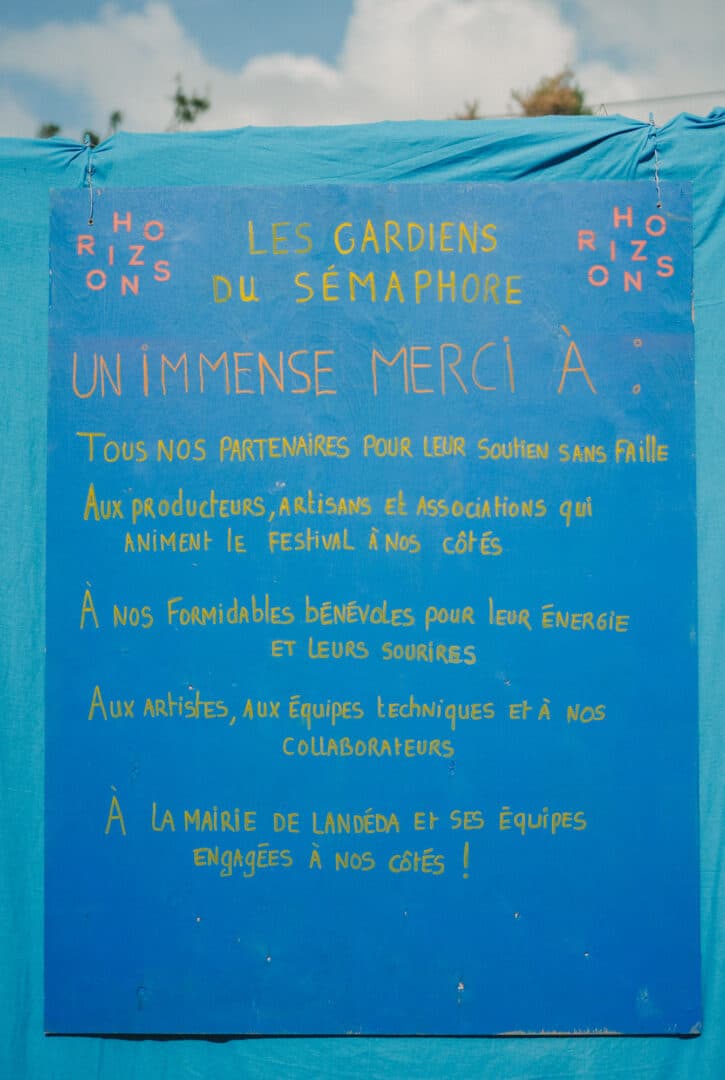 HORIZONS
LES GARDIENS
DU SÉMAPHORE
HORIZONS
UN IMMENSE MERCI À :
TOUS NOS PARTENAIRES POUR LEUR SOUTIEN SANS FAILLE
AUX PRODUCTEURS, ARTISANS ET ASSOCIATIONS QUI
ANIMENT LE FESTIVAL À NOS CÔTÉS
À NOS FORMIDABLES BÉNÉVOLES POUR LEUR ÉNERGIE
ET LEURS SOURIRES
AUX ARTISTES, AUX ÉQUIPES TECHNIQUES ET À NOS
COLLABORATEURS
À LA MAIRIE DE LANDÉDA ET SES ÉQUIPES
ENGAGÉES À NOS CÔTÉS !